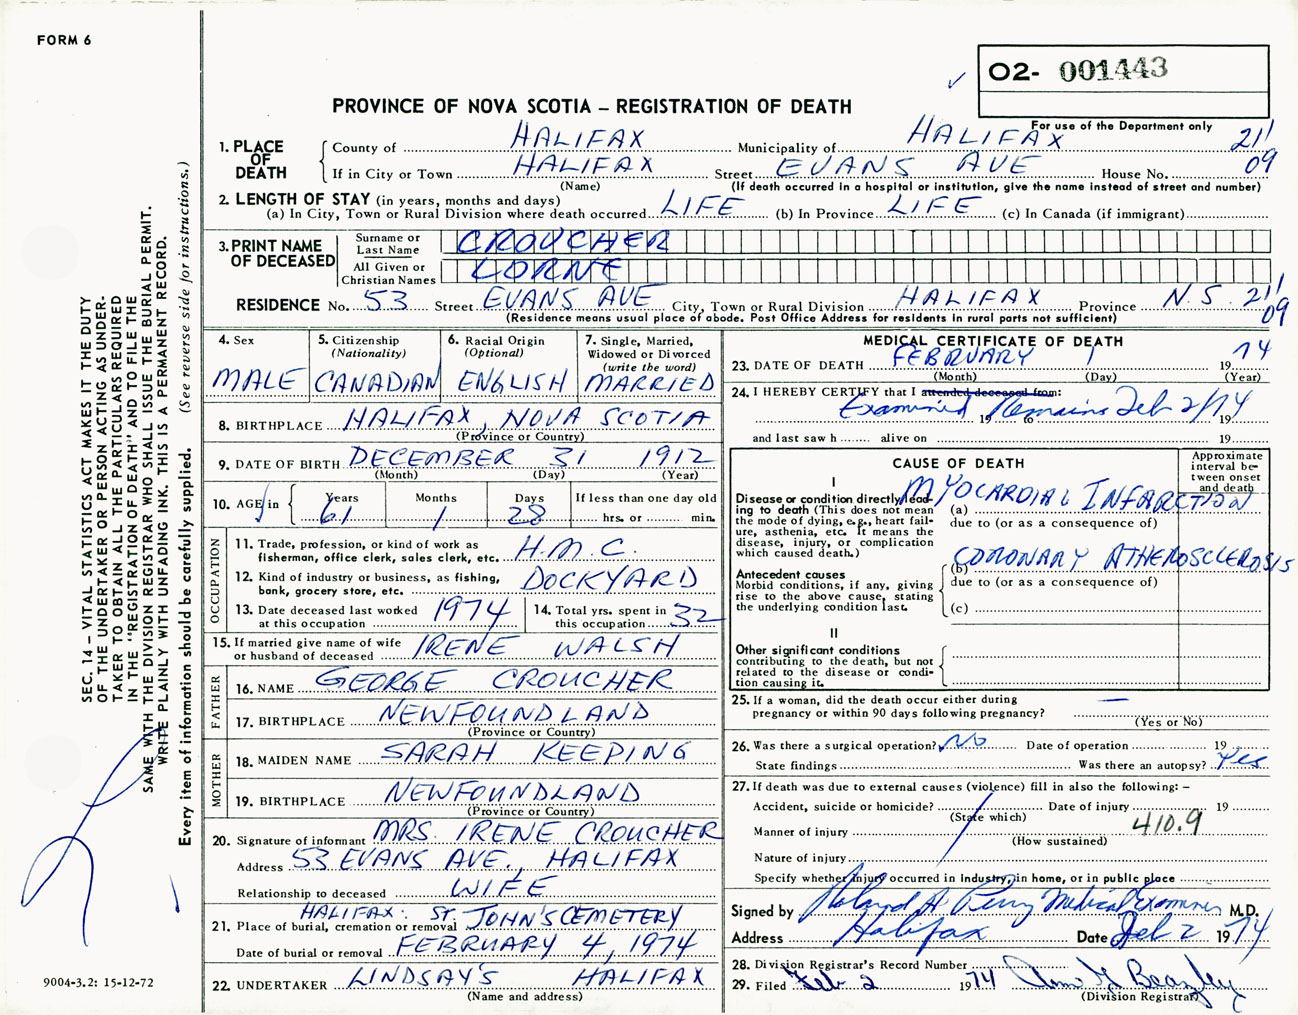 FORM 6
O2- 001443
PROVINCE OF NOVA SCOTIA – REGISTRATION OF DEATH
For use of the Department only
1. PLACE OF DEATH
County of HALIFAX Municipality of HALIFAX 21'
If in City or Town HALIFAX Street EVANS AVE House No. 09
(Name) (If death occurred in a hospital or institution, give the name instead of street and number)
2. LENGTH OF STAY (in years, months and days)
(a) In City, Town or Rural Division where death occurred LIFE (b) In Province LIFE (c) In Canada (if immigrant)
3. PRINT NAME OF DECEASED
Surname or Last Name CROUCHER
All Given or Christian Names LORNE
RESIDENCE No. 53 Street EVANS AVE City, Town or Rural Division HALIFAX Province N.S. 21' 09
(Residence means usual place of abode. Post Office Address for residents in rural parts not sufficient)
4. Sex
MALE
5. Citizenship
(Nationality)
CANADIAN
6. Racial Origin
(Optional)
ENGLISH
7. Single, Married,
Widowed or Divorced
(write the word)
MARRIED
8. BIRTHPLACE HALIFAX, NOVA SCOTIA
(Province or Country)
9. DATE OF BIRTH DECEMBER 31 1912
(Month) (Day) (Year)
10. AGE in
Years Months Days If less than one day old
61 1 28 hrs. or min.
OCCUPATION
11. Trade, profession, or kind of work as
fisherman, office clerk, sales clerk, etc. H.M.C.
12. Kind of industry or business, as fishing,
bank, grocery store, etc. DOCKYARD
13. Date deceased last worked
at this occupation 1974
14. Total yrs. spent in
this occupation 32
15. If married give name of wife
or husband of deceased IRENE WALSH
FATHER
16. NAME GEORGE CROUCHER
17. BIRTHPLACE NEWFOUNDLAND
(Province or Country)
MOTHER
18. MAIDEN NAME SARAH KEEPING
19. BIRTHPLACE NEWFOUNDLAND
(Province or Country)
20. Signature of informant MRS. IRENE CROUCHER
Address 53 EVANS AVE., HALIFAX
Relationship to deceased WIFE
21. Place of burial, cremation or removal HALIFAX: ST. JOHN'S CEMETERY
Date of burial or removal FEBRUARY 4, 1974
22. UNDERTAKER LINDSAY'S HALIFAX
(Name and address)
MEDICAL CERTIFICATE OF DEATH
23. DATE OF DEATH FEBRUARY 1 1974
(Month) (Day) (Year)
24. I HEREBY CERTIFY that I attended deceased from:
Examined Remains Feb 2/74
19 to 19
and last saw h alive on 19
CAUSE OF DEATH
Approximate
interval be-
tween onset
and death
I
Disease or condition directly lead-
ing to death (This does not mean
the mode of dying, e.g., heart fail-
ure, asthenia, etc. It means the
disease, injury, or complication
which caused death.)
(a) MYOCARDIAL INFARCTION
due to (or as a consequence of)
Antecedent causes
Morbid conditions, if any, giving
rise to the above cause, stating
the underlying condition last.
(b) CORONARY ATHEROSCLEROSIS
due to (or as a consequence of)
(c)
II
Other significant conditions
contributing to the death, but not
related to the disease or condi-
tion causing it.
25. If a woman, did the death occur either during
pregnancy or within 90 days following pregnancy? —
(Yes or No)
26. Was there a surgical operation? No Date of operation 19
State findings Was there an autopsy? Yes
27. If death was due to external causes (violence) fill in also the following: –
Accident, suicide or homicide? Date of injury 19
(State which)
Manner of injury 410.9
(How sustained)
Nature of injury
Specify whether injury occurred in industry, in home, or in public place
Signed by Roland A. Perry Medical Examiner M.D.
Address Halifax Date Feb 2 1974
28. Division Registrar's Record Number
29. Filed Feb 2 1974
(Division Registrar)
SEC. 14 – VITAL STATISTICS ACT MAKES IT THE DUTY
OF THE UNDERTAKER OR PERSON ACTING AS UNDER-
TAKER TO OBTAIN ALL THE PARTICULARS REQUIRED
IN THE "REGISTRATION OF DEATH" AND TO FILE THE
SAME WITH THE DIVISION REGISTRAR WHO SHALL ISSUE THE BURIAL PERMIT.
WRITE PLAINLY WITH UNFADING INK. THIS IS A PERMANENT RECORD.
Every item of information should be carefully supplied. (See reverse side for instructions.)
9004-3.2: 15-12-72